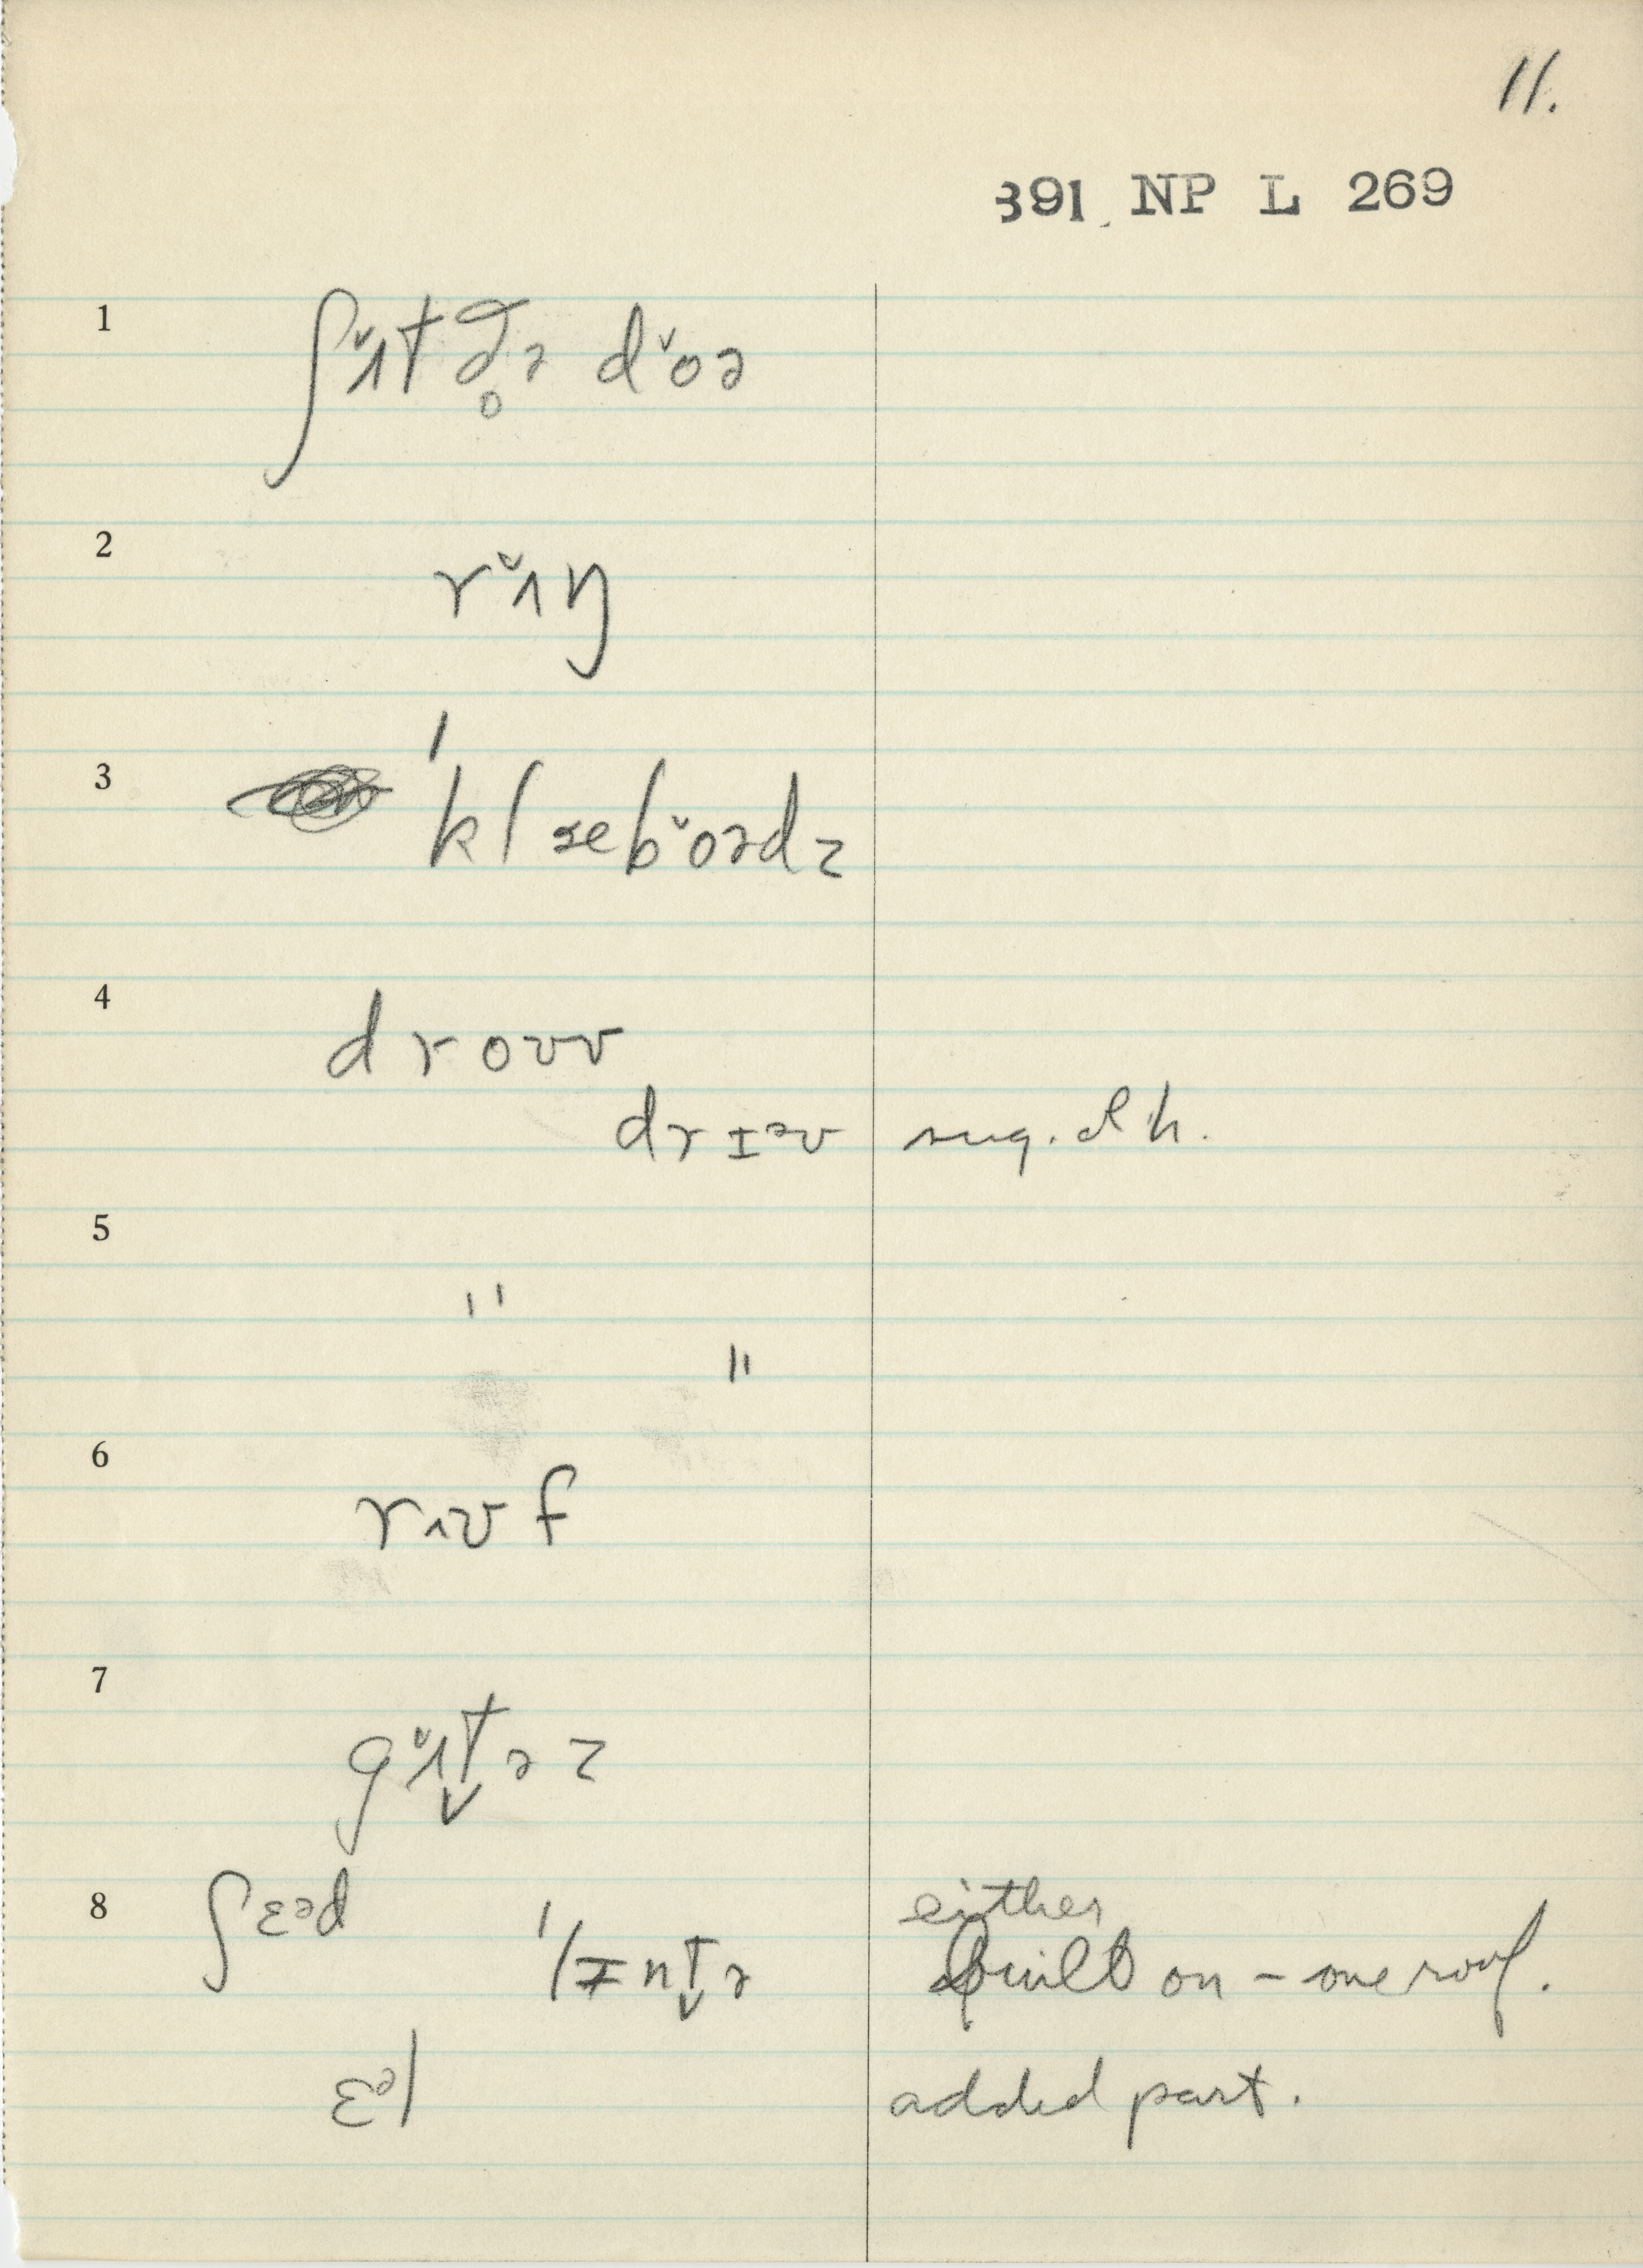 11.
391 NP L 269
1 ʃʌ̆t ð̥ə dŏə
2 rʌ̆ŋ
3 ˈklæbŏədz
4 droʊv
drɪᵊv sug. d h.
5 "
"
6 rʌʊf
7 gʌ̆t̬əz
8 ʃɛᵊd ˈlɪnt̬ə either
built on – one roof.
ɛᵊl added part.